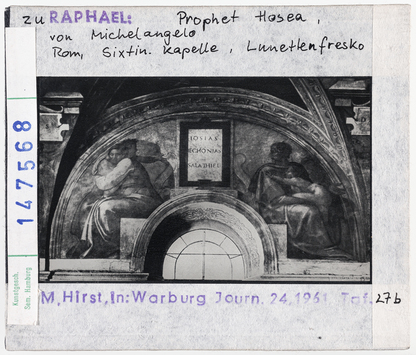 zu RAPHAEL: Prophet Hosea,
von Michelangelo
Rom, Sixtin. Kapelle, Lunettenfresko
IOSIAS
IECHONIAS
SALATHIEL
147568
Kunstgesch.
Sem. Hamburg
M, Hirst, In: Warburg Journ. 24, 1961 Taf. 27b